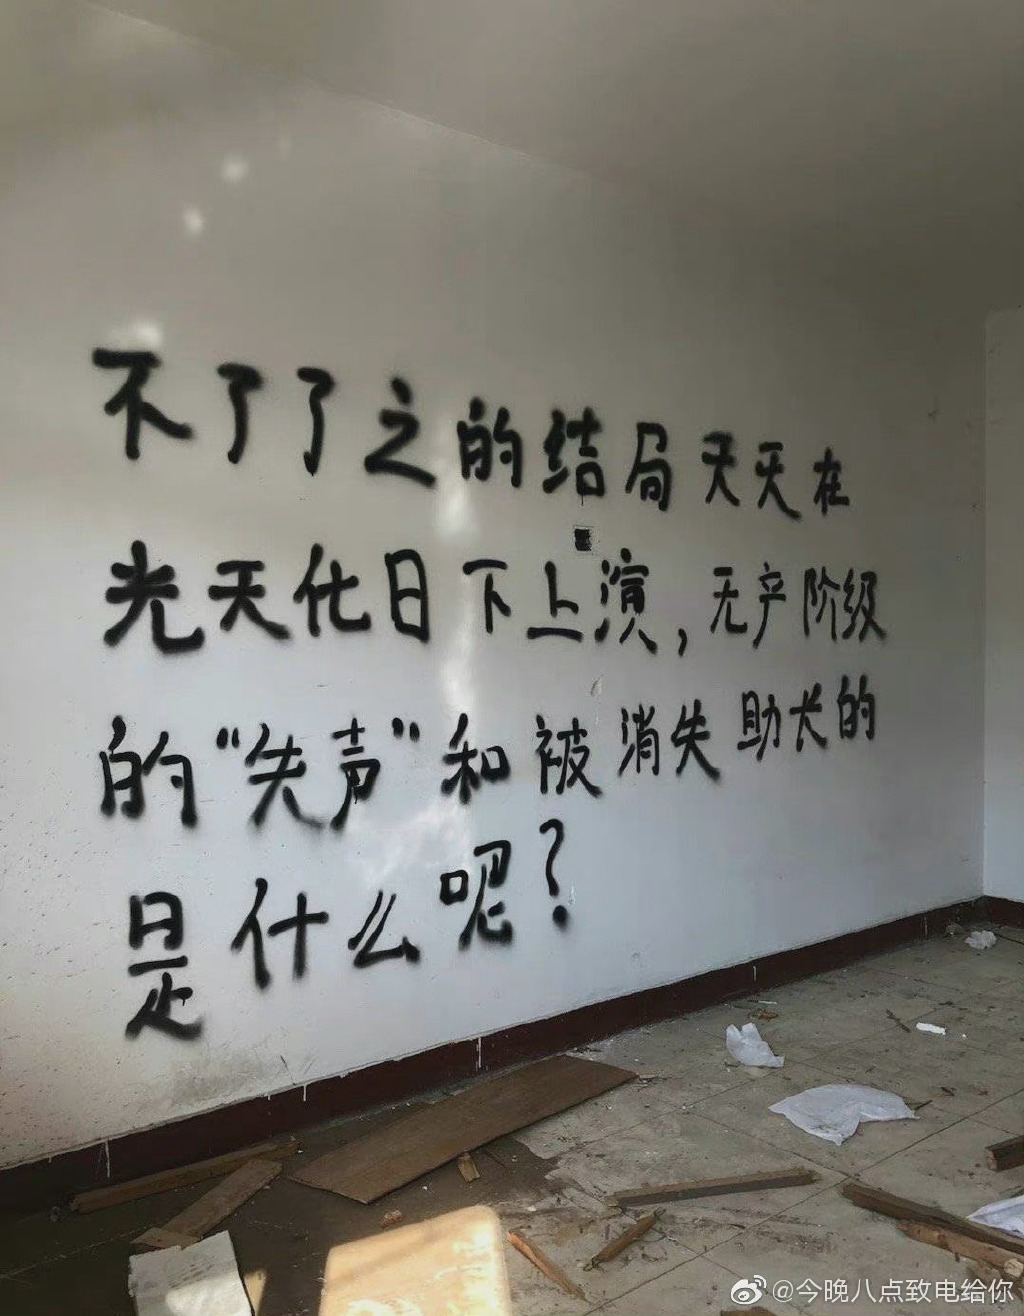 不了了之的结局天天在
光天化日下上演，无产阶级
的“失声”和被消失助长的
是什么呢？
@今晚八点致电给你